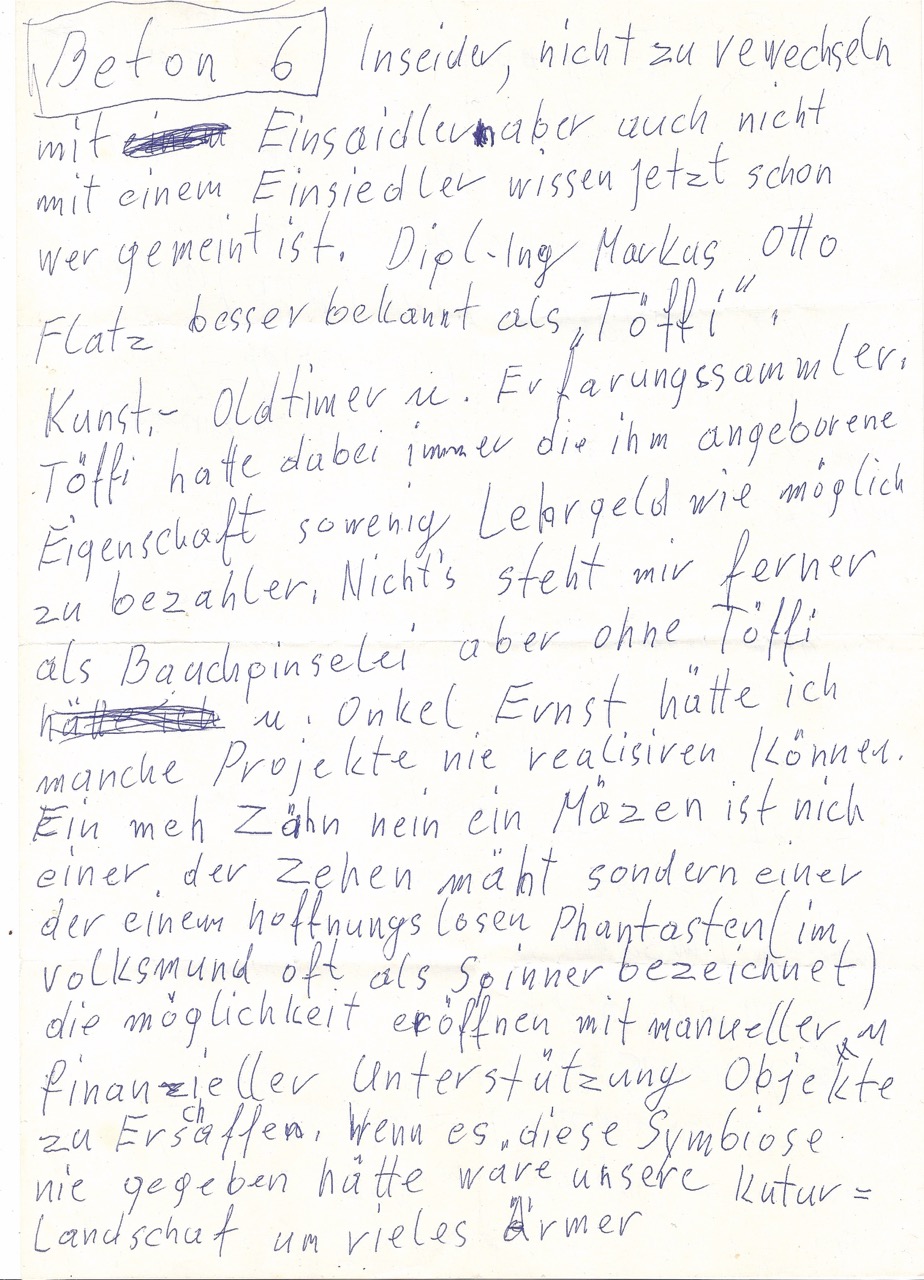 Beton 6 Inseider, nicht zu vewechseln
mit Einsaidler aber auch nicht
mit einem Einsiedler wissen jetzt schon
wer gemeint ist. Dipl.-Ing Markus Otto
Flatz besser bekannt als „Töffi".
Kunst,- Oldtimer u. Erfarungssammler.
Töffi hatte dabei immer die ihm angeborene
Eigenschaft sowenig Lehrgeld wie möglich
zu bezahlen. Nicht's steht mir ferner
als Bauchpinselei aber ohne Töffi
hätte ich u. Onkel Ernst hätte ich
manche Projekte nie realisiren können.
Ein meh Zähn nein ein Mäzen ist nich
einer der Zehen mäht sondern einer
der einem hoffnungslosen Phantasten (im
volksmund oft als Spinner bezeichnet)
die möglichkeit eröffnen mit manueller u
finanzieller Unterstützung Objekte
zu Erschaffen. Wenn es diese Symbiose
nie gegeben hätte wäre unsere Kutur=
Landschaf um vieles Ärmer